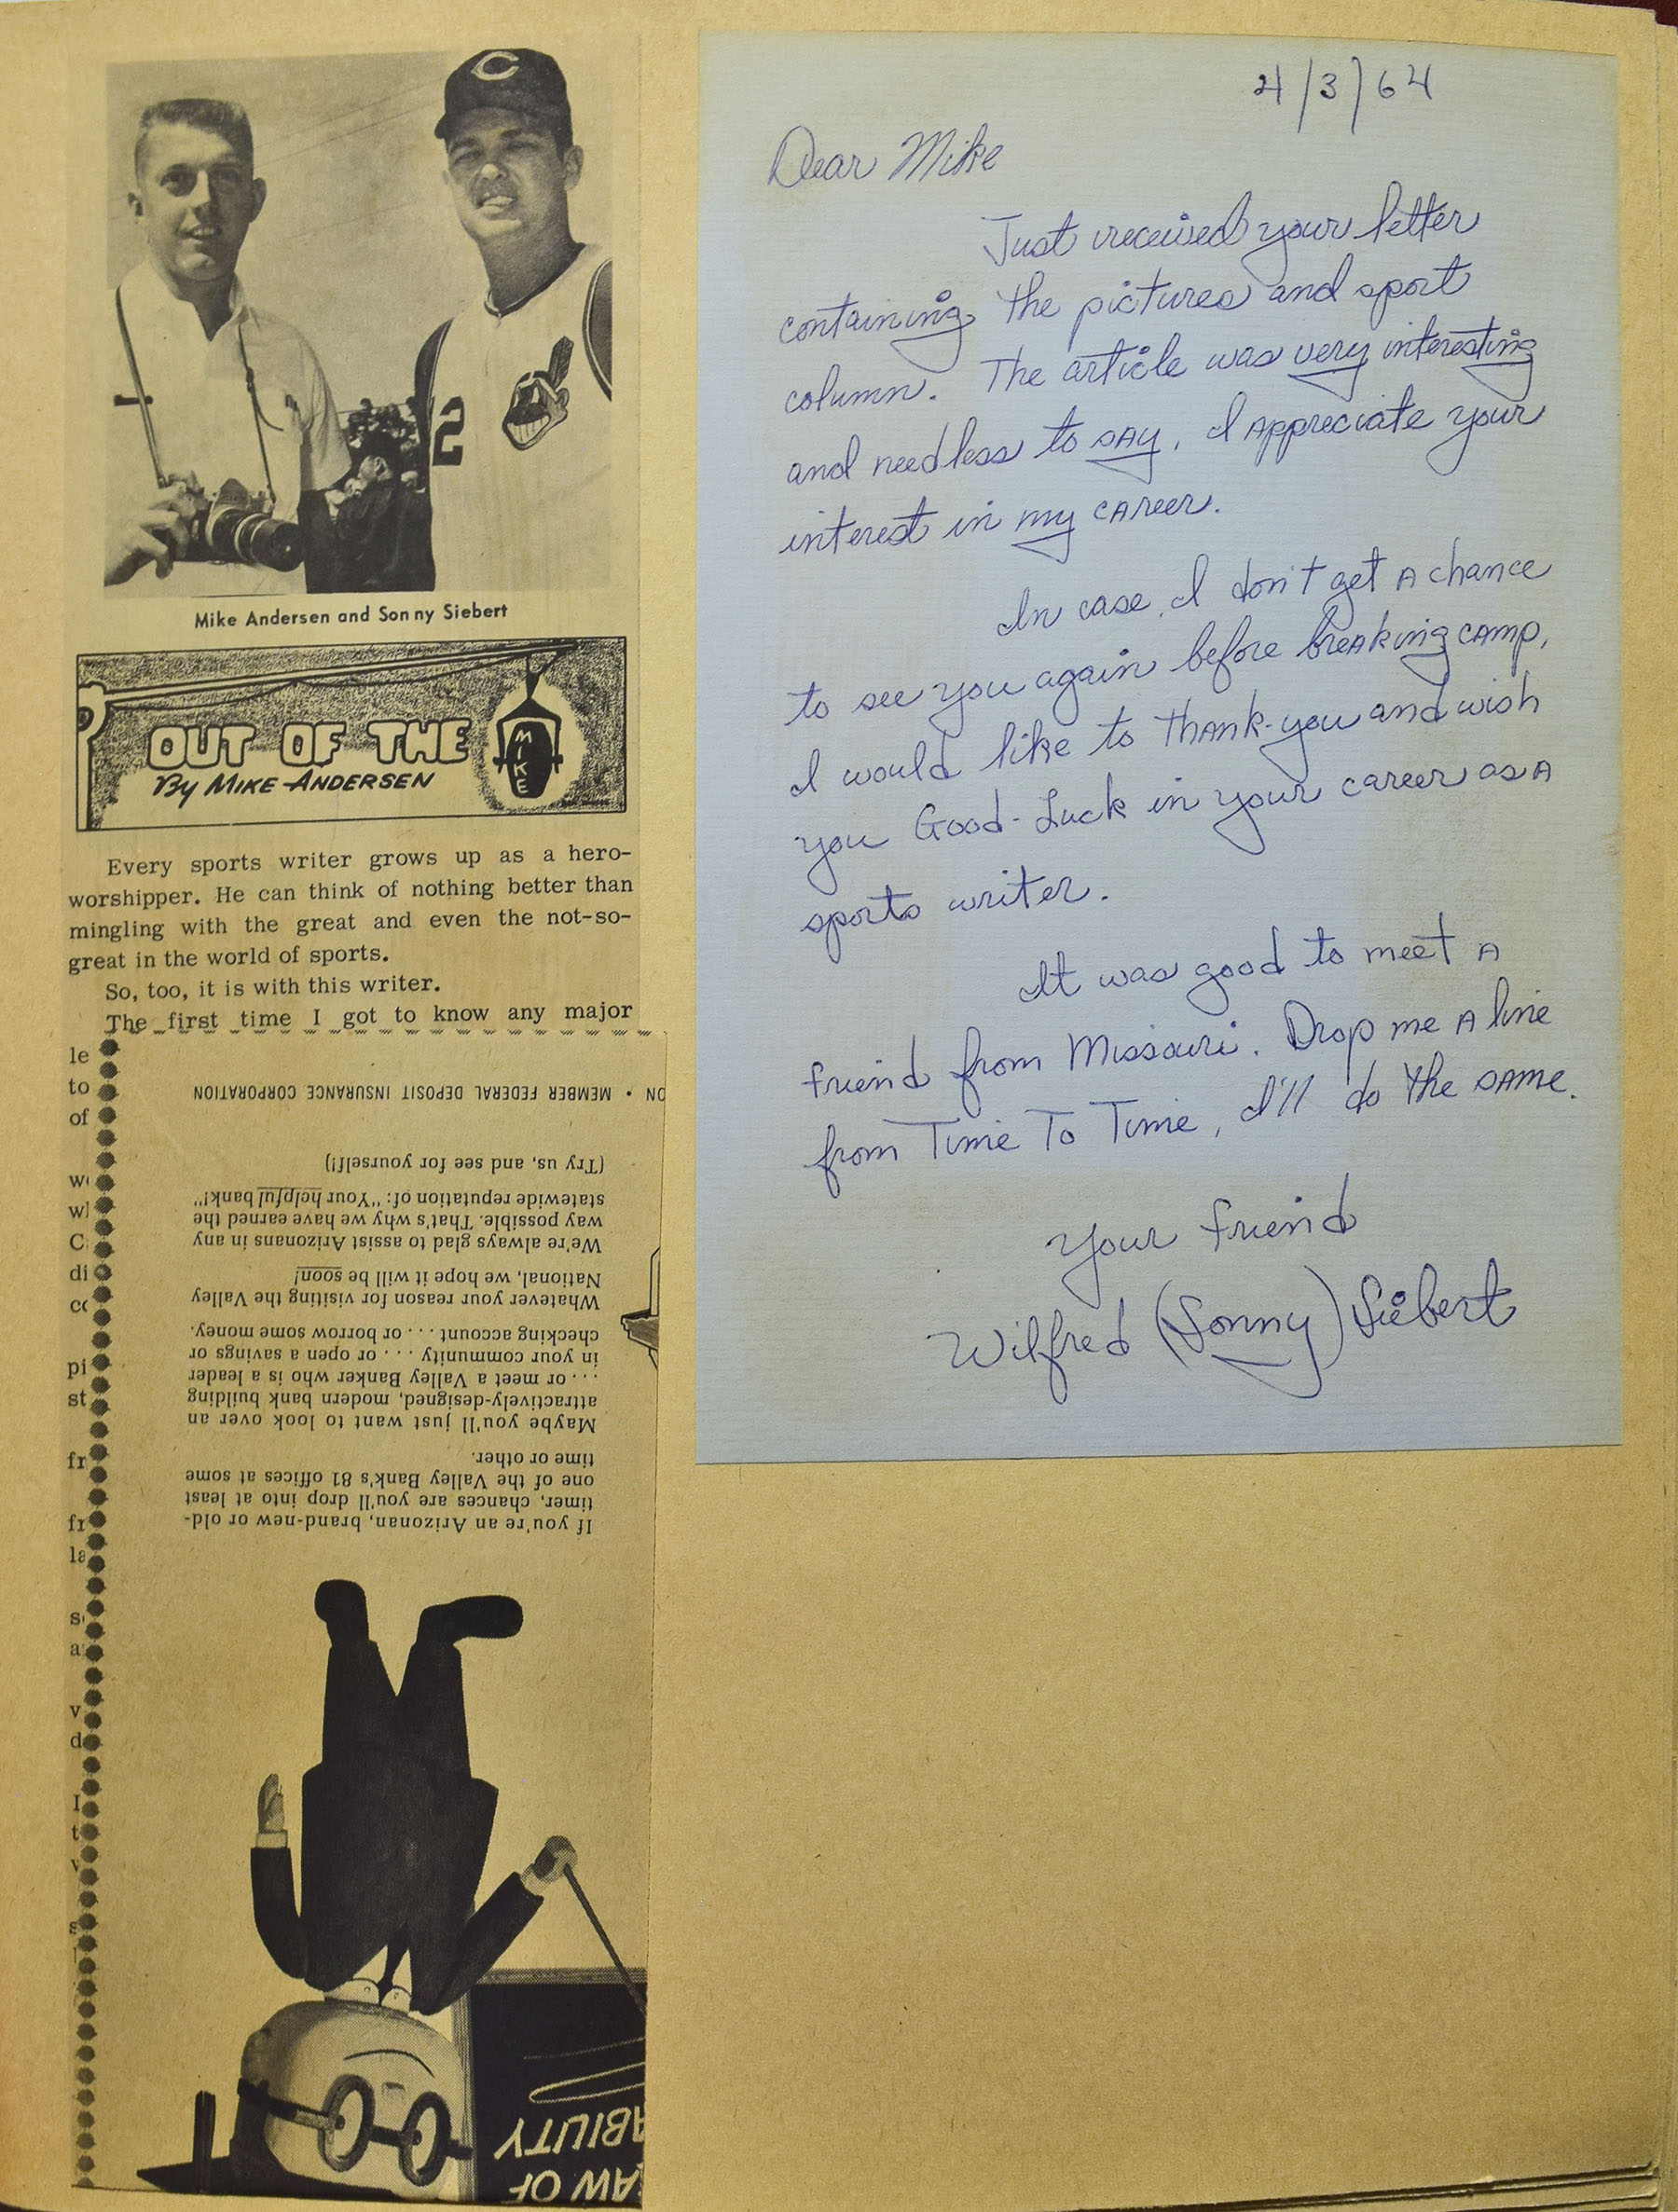 C
2
Mike Andersen and Sonny Siebert
OUT OF THE
MIKE
By MIKE ANDERSEN
Every sports writer grows up as a hero-
worshipper. He can think of nothing better than
mingling with the great and even the not-so-
great in the world of sports.
So, too, it is with this writer.
The first time I got to know any major
le
to
of
pi
st
fr
fr
la
ON • MEMBER FEDERAL DEPOSIT INSURANCE CORPORATION
(Try us, and see for yourself!)
statewide reputation of: "Your helpful bank!"
way possible. That's why we have earned the
We're always glad to assist Arizonans in any
National, we hope it will be soon!
Whatever your reason for visiting the Valley
checking account . . . or borrow some money.
in your community . . . or open a savings or
. . . or meet a Valley Banker who is a leader
attractively-designed, modern bank building
Maybe you'll just want to look over an
time or other.
one of the Valley Bank's 81 offices at some
timer, chances are you'll drop into at least
If you're an Arizonan, brand-new or old-
ABILITY
AW OF
4/3/64
Dear Mike
Just received your letter
containing the pictures and sport
column. The article was very interesting
and needless to say, I appreciate your
interest in my career.
In case I don't get a chance
to see you again before breaking camp,
I would like to thank-you and wish
you Good-Luck in your career as a
sports writer.
It was good to meet a
friend from Missouri. Drop me a line
from Time To Time, I'll do the same.
Your friend
Wilfred (Sonny) Siebert